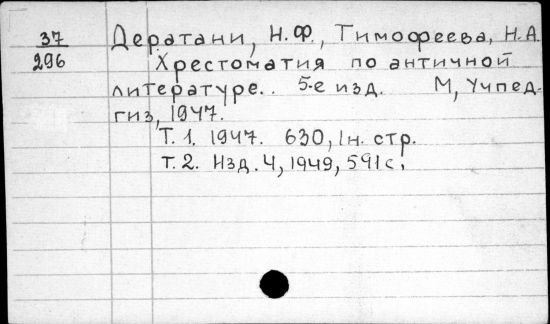 37 Дератани, Н.Ф., Тимофеева, Н.А.
296 Хрестоматия по античной
литературе.. 5-е изд. М, Учпед-
гиз, 1947.
Т. 1. 1947. 630, 1н. стр.
Т. 2. Изд. 4, 1949, 591 с.